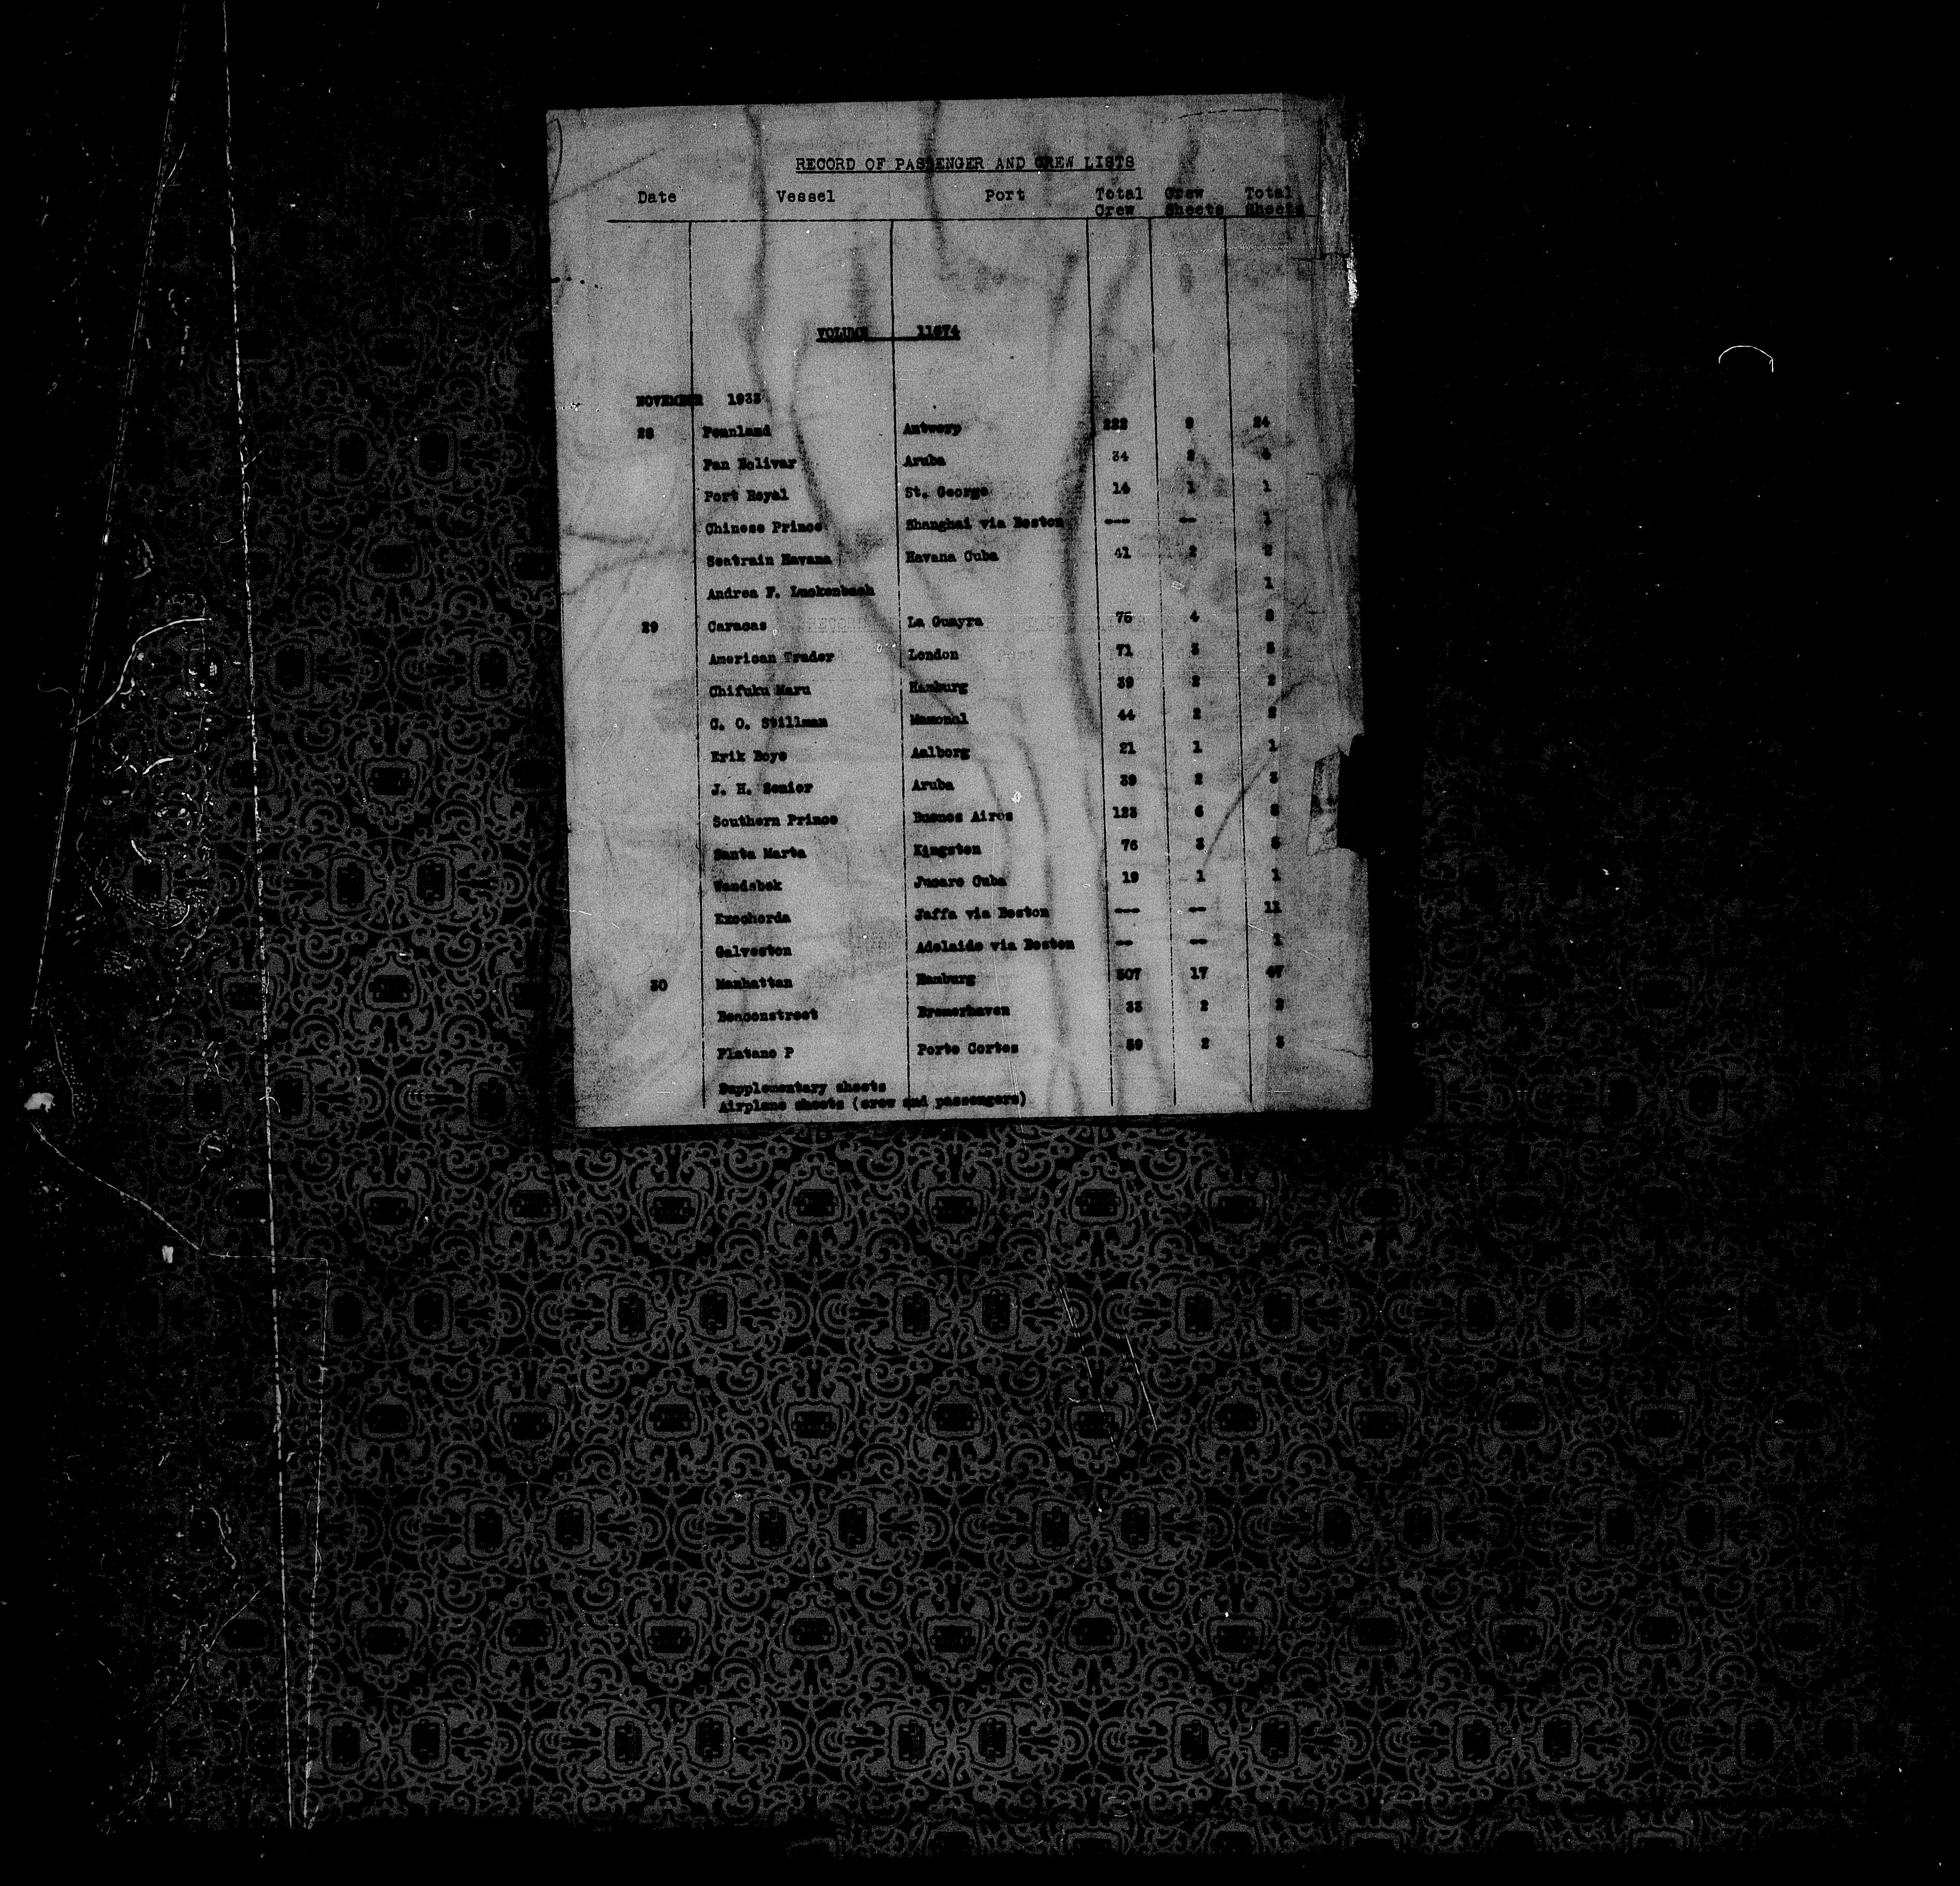 RECORD OF PASSENGER AND CREW LISTS
Date Vessel Port Total Crew Crew Sheets Total Sheets
VOLUME 11674
NOVEMBER 1933
28 Pennland Antwerp 222 9 24
Pan Bolivar Aruba 34 2
Port Royal St. George 14 1 1
Chinese Prince Shanghai via Boston --- -- 1
Seatrain Havana Havana Cuba 41 2 2
Andrea F. Luckenbach 1
29 Caracas La Guayra 75 4 8
American Trader London 71 3 5
Chifuku Maru Hamburg 39 2 2
C. O. Stillman Mamonal 44 2 2
Erik Boye Aalborg 21 1 1
J. H. Senior Aruba 39 2 3
Southern Prince Buenos Aires 123 6 8
Santa Marta Kingston 76 3 5
Wandsbek Jucaro Cuba 19 1 1
Exochorda Jaffa via Boston --- -- 11
Galveston Adelaide via Boston -- -- 1
30 Manhattan Hamburg 507 17 47
Beaconstreet Bremerhaven 33 2 2
Platano P Porto Cortes 59 2 3
Supplementary sheets
Airplane sheets (crew and passengers)